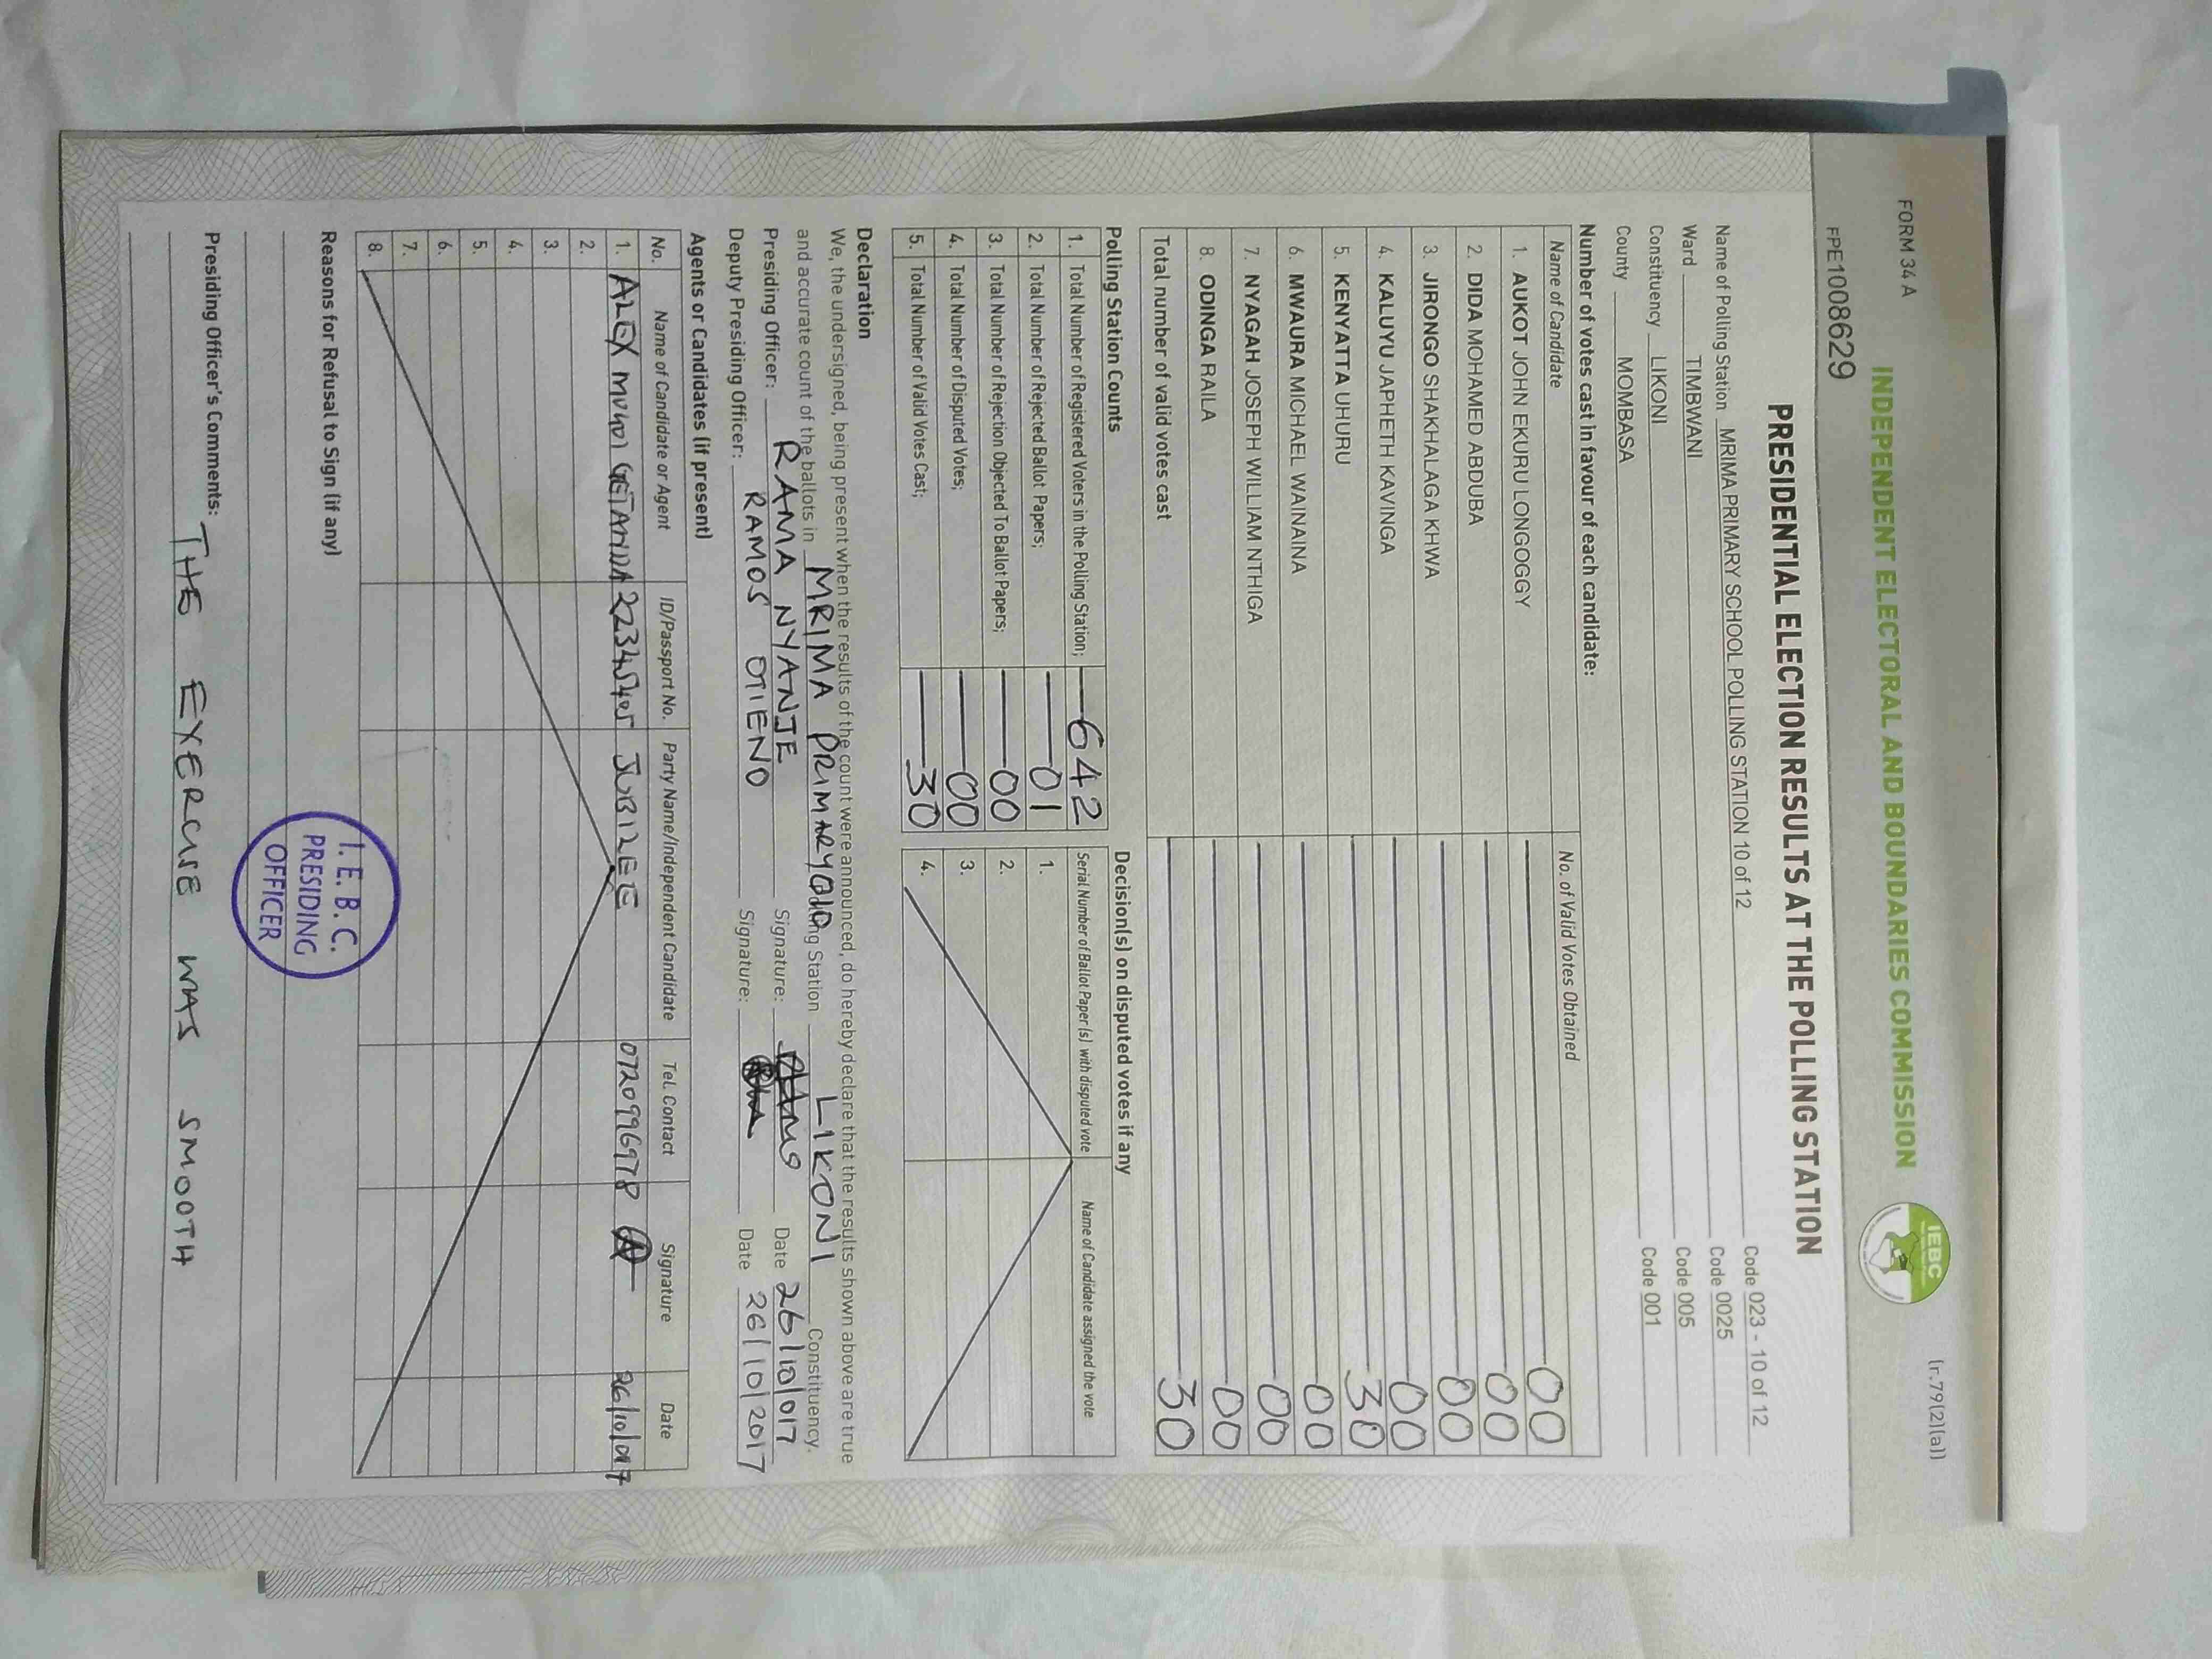 FORM 34 A
(r.79(2)(a))
INDEPENDENT ELECTORAL AND BOUNDARIES COMMISSION
IEBC
FPE1008629
PRESIDENTIAL ELECTION RESULTS AT THE POLLING STATION
Name of Polling Station MRIMA PRIMARY SCHOOL POLLING STATION 10 of 12 Code 023 - 10 of 12
Ward TIMBWANI Code 0025
Constituency LIKONI Code 005
County MOMBASA Code 001
Number of votes cast in favour of each candidate:
Name of Candidate No. of Valid Votes Obtained
1. AUKOT JOHN EKURU LONGOGGY 00
2. DIDA MOHAMED ABDUBA 00
3. JIRONGO SHAKHALAGA KHWA 00
4. KALUYU JAPHETH KAVINGA 00
5. KENYATTA UHURU 30
6. MWAURA MICHAEL WAINAINA 00
7. NYAGAH JOSEPH WILLIAM NTHIGA 00
8. ODINGA RAILA 00
Total number of valid votes cast 30
Polling Station Counts
1. Total Number of Registered Voters in the Polling Station; 642
2. Total Number of Rejected Ballot Papers; 01
3. Total Number of Rejection Objected To Ballot Papers; 00
4. Total Number of Disputed Votes; 00
5. Total Number of Valid Votes Cast; 30
Decision(s) on disputed votes if any
Serial Number of Ballot Paper(s) with disputed vote Name of Candidate assigned the vote
1.
2.
3.
4.
Declaration
We, the undersigned, being present when the results of the count were announced, do hereby declare that the results shown above are true
and accurate count of the ballots in MRIMA PRIMARY 010 Polling Station LIKONI Constituency.
Presiding Officer: RAMA NYANJE Signature: Date 26/10/017
Deputy Presiding Officer: RAMOS OTIENO Signature: Date 26/10/2017
Agents or Candidates (if present)
No. Name of Candidate or Agent ID/Passport No. Party Name/Independent Candidate Tel. Contact Signature Date
1. ALEX JUBILEE 0720996978 26/10/017
2.
3.
4.
5.
6.
7.
8.
Reasons for Refusal to Sign (if any)
I. E. B. C.
PRESIDING
OFFICER
Presiding Officer's Comments: THE EXERCISE WAS SMOOTH